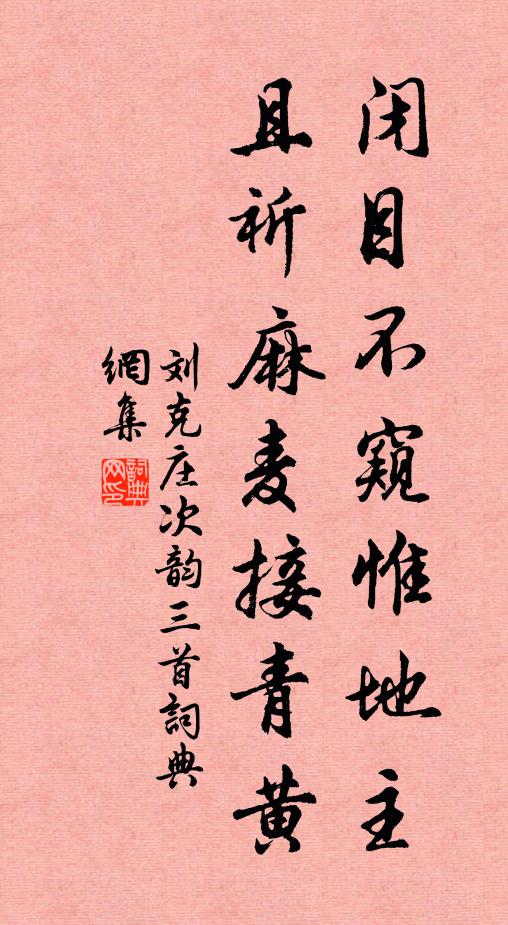 闭目不窥惟地主
且祈麻麦接青黄
刘克庄次韵三首词典
網集
詞典网印